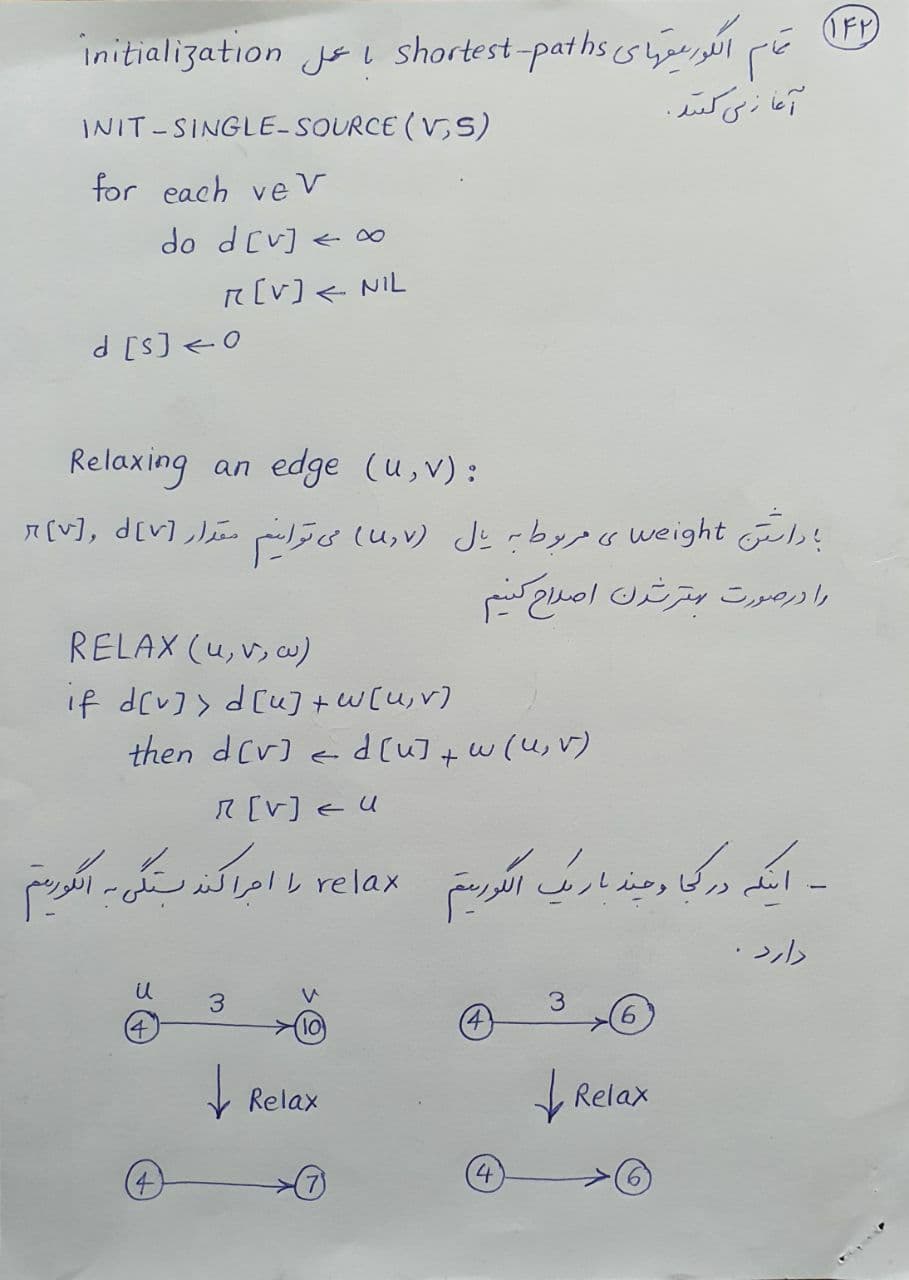 ۱۴۲
تمام الگوریتمهای shortest-paths با عمل initialization
آغاز می کنند.
INIT-SINGLE-SOURCE(V,S)
for each v∈V
do d[v] ← ∞
π[v] ← NIL
d[s] ← 0
Relaxing an edge (u,v):
با داشتن weight ی مربوط به یال (u,v) می توانیم مقدار d[v], π[v]
را در صورت بهتر شدن اصلاح کنیم
RELAX(u,v,ω)
if d[v] > d[u] + w[u,v)
then d[v] ← d[u] + w(u,v)
π[v] ← u
- اینکه در کجا و چند بار یک الگوریتم relax را اجرا کند بستگی به الگوریتم
دارد.
u 3 v 3
4 10 4 6
Relax Relax
4 7 4 6